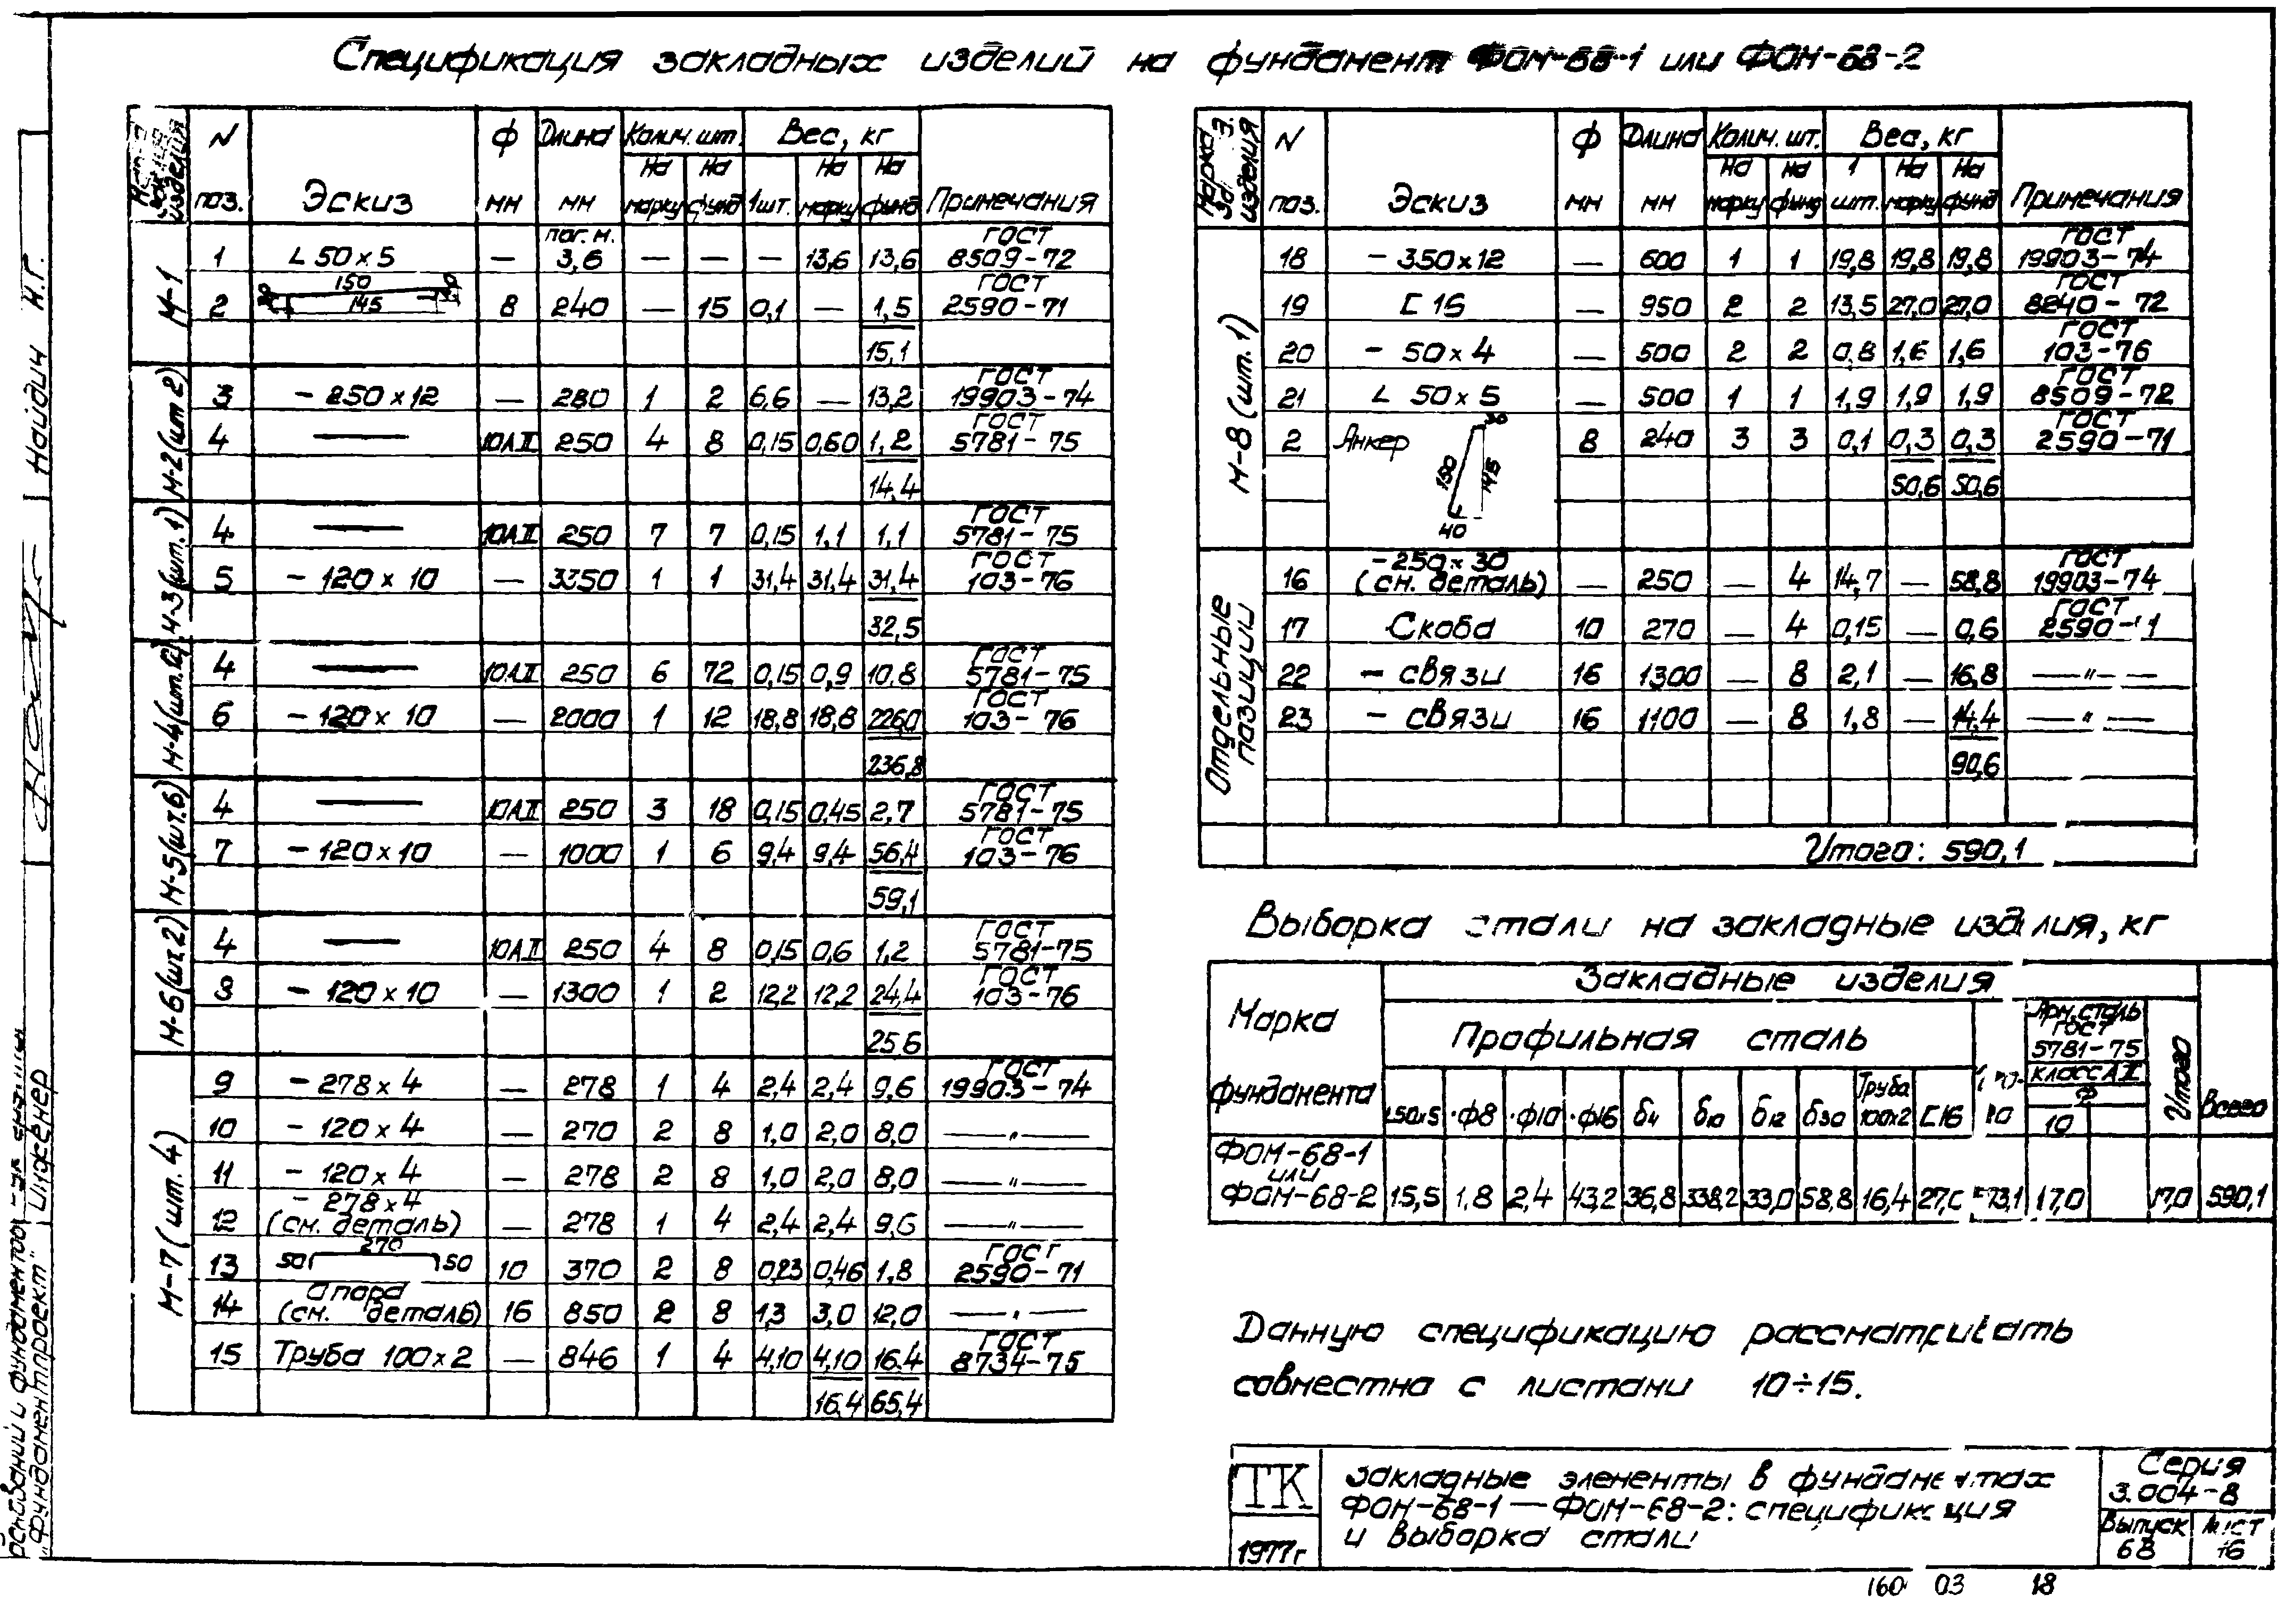 Спецификация закладных изделий на фундамент ФОМ-68-1 или ФОМ-68-2
изделия N поз. Эскиз Ф мм Длина мм Колич. шт. На марку На фунд Вес, кг 1шт. На марку На фунд Примечания
М-1
1 L 50×5 — пог. м. 3,6 — — — 13,6 13,6 ГОСТ 8509-72
2 150 145 8 240 — 15 0,1 — 1,5 ГОСТ 2590-71
15,1
М-2 (шт 2)
3 - 250×12 — 280 1 2 6,6 — 13,2 ГОСТ 19903-74
4 —— 10АII 250 4 8 0,15 0,60 1,2 ГОСТ 5781-75
14,4
М-3 (шт. 1)
4 —— 10АII 250 7 7 0,15 1,1 1,1 ГОСТ 5781-75
5 - 120×10 — 3350 1 1 31,4 31,4 31,4 ГОСТ 103-76
32,5
М-4 (шт. 12)
4 —— 10АII 250 6 72 0,15 0,9 10,8 ГОСТ 5781-75
6 - 120×10 — 2000 1 12 18,8 18,8 226,0 ГОСТ 103-76
236,8
М-5 (шт. 6)
4 —— 10АII 250 3 18 0,15 0,45 2,7 ГОСТ 5781-75
7 - 120×10 — 1000 1 6 9,4 9,4 56,4 ГОСТ 103-76
59,1
М-6 (шт. 2)
4 —— 10АII 250 4 8 0,15 0,6 1,2 ГОСТ 5781-75
8 - 120×10 — 1300 1 2 12,2 12,2 24,4 ГОСТ 103-76
25,6
М-7 (шт. 4)
9 - 278×4 — 278 1 4 2,4 2,4 9,6 ГОСТ 19903-74
10 - 120×4 — 270 2 8 1,0 2,0 8,0 —"—
11 - 120×4 — 278 2 8 1,0 2,0 8,0 —"—
12 - 278×4 (см. деталь) — 278 1 4 2,4 2,4 9,6 —"—
13 50 270 50 10 370 2 8 0,23 0,46 1,8 ГОСТ 2590-71
14 Опора (см. деталь) 16 850 2 8 1,3 3,0 12,0 —"—
15 Труба 100×2 — 846 1 4 4,10 4,10 16,4 ГОСТ 8734-75
16,4 65,4
Марка з. изделия N поз. Эскиз Ф мм Длина мм Колич. шт. На марку На фунд Вес, кг 1 шт. На марку На фунд Примечания
М-8 (шт. 1)
18 - 350×12 — 600 1 1 19,8 19,8 19,8 ГОСТ 19903-74
19 [ 16 — 950 2 2 13,5 27,0 27,0 ГОСТ 8240-72
20 - 50×4 — 500 2 2 0,8 1,6 1,6 ГОСТ 103-76
21 L 50×5 — 500 1 1 1,9 1,9 1,9 ГОСТ 8509-72
2 Анкер 30 150 145 40 8 240 3 3 0,1 0,3 0,3 ГОСТ 2590-71
50,6 50,6
Отдельные позиции
16 - 250×30 (см. деталь) — 250 — 4 14,7 — 58,8 ГОСТ 19903-74
17 Скоба 10 270 — 4 0,15 — 0,6 ГОСТ
22 - связи 16 1300 — 8 2,1 — 16,8 —"—
23 - связи 16 1100 — 8 1,8 — 14,4 —"—
90,6
Итого: 590,1
Выборка стали на закладные изделия, кг
Марка фундамента Закладные изделия Всего
Профильная сталь Арм. сталь ГОСТ 5781-75 Итого
класс АII Ф
L50×5 •Ф8 •Ф10 •Ф16 δ4 δ10 δ12 δ30 Труба 100×2 [16 10
ФОМ-68-1 или ФОМ-68-2 15,5 1,8 2,4 43,2 36,8 338,2 33,0 58,8 16,4 27,0 17,0 17,0 590,1
Данную спецификацию рассматривать
совместно с листами 10÷15.
ТК
1977г
Закладные элементы в фундаментах
ФОМ-68-1 — ФОМ-68-2: спецификация
и выборка стали
Серия
3.004-8
Выпуск 68
Лист 16
03 18
Найдич И.Г.
оснований и фундаментов
"Фундаментпроект" инженер